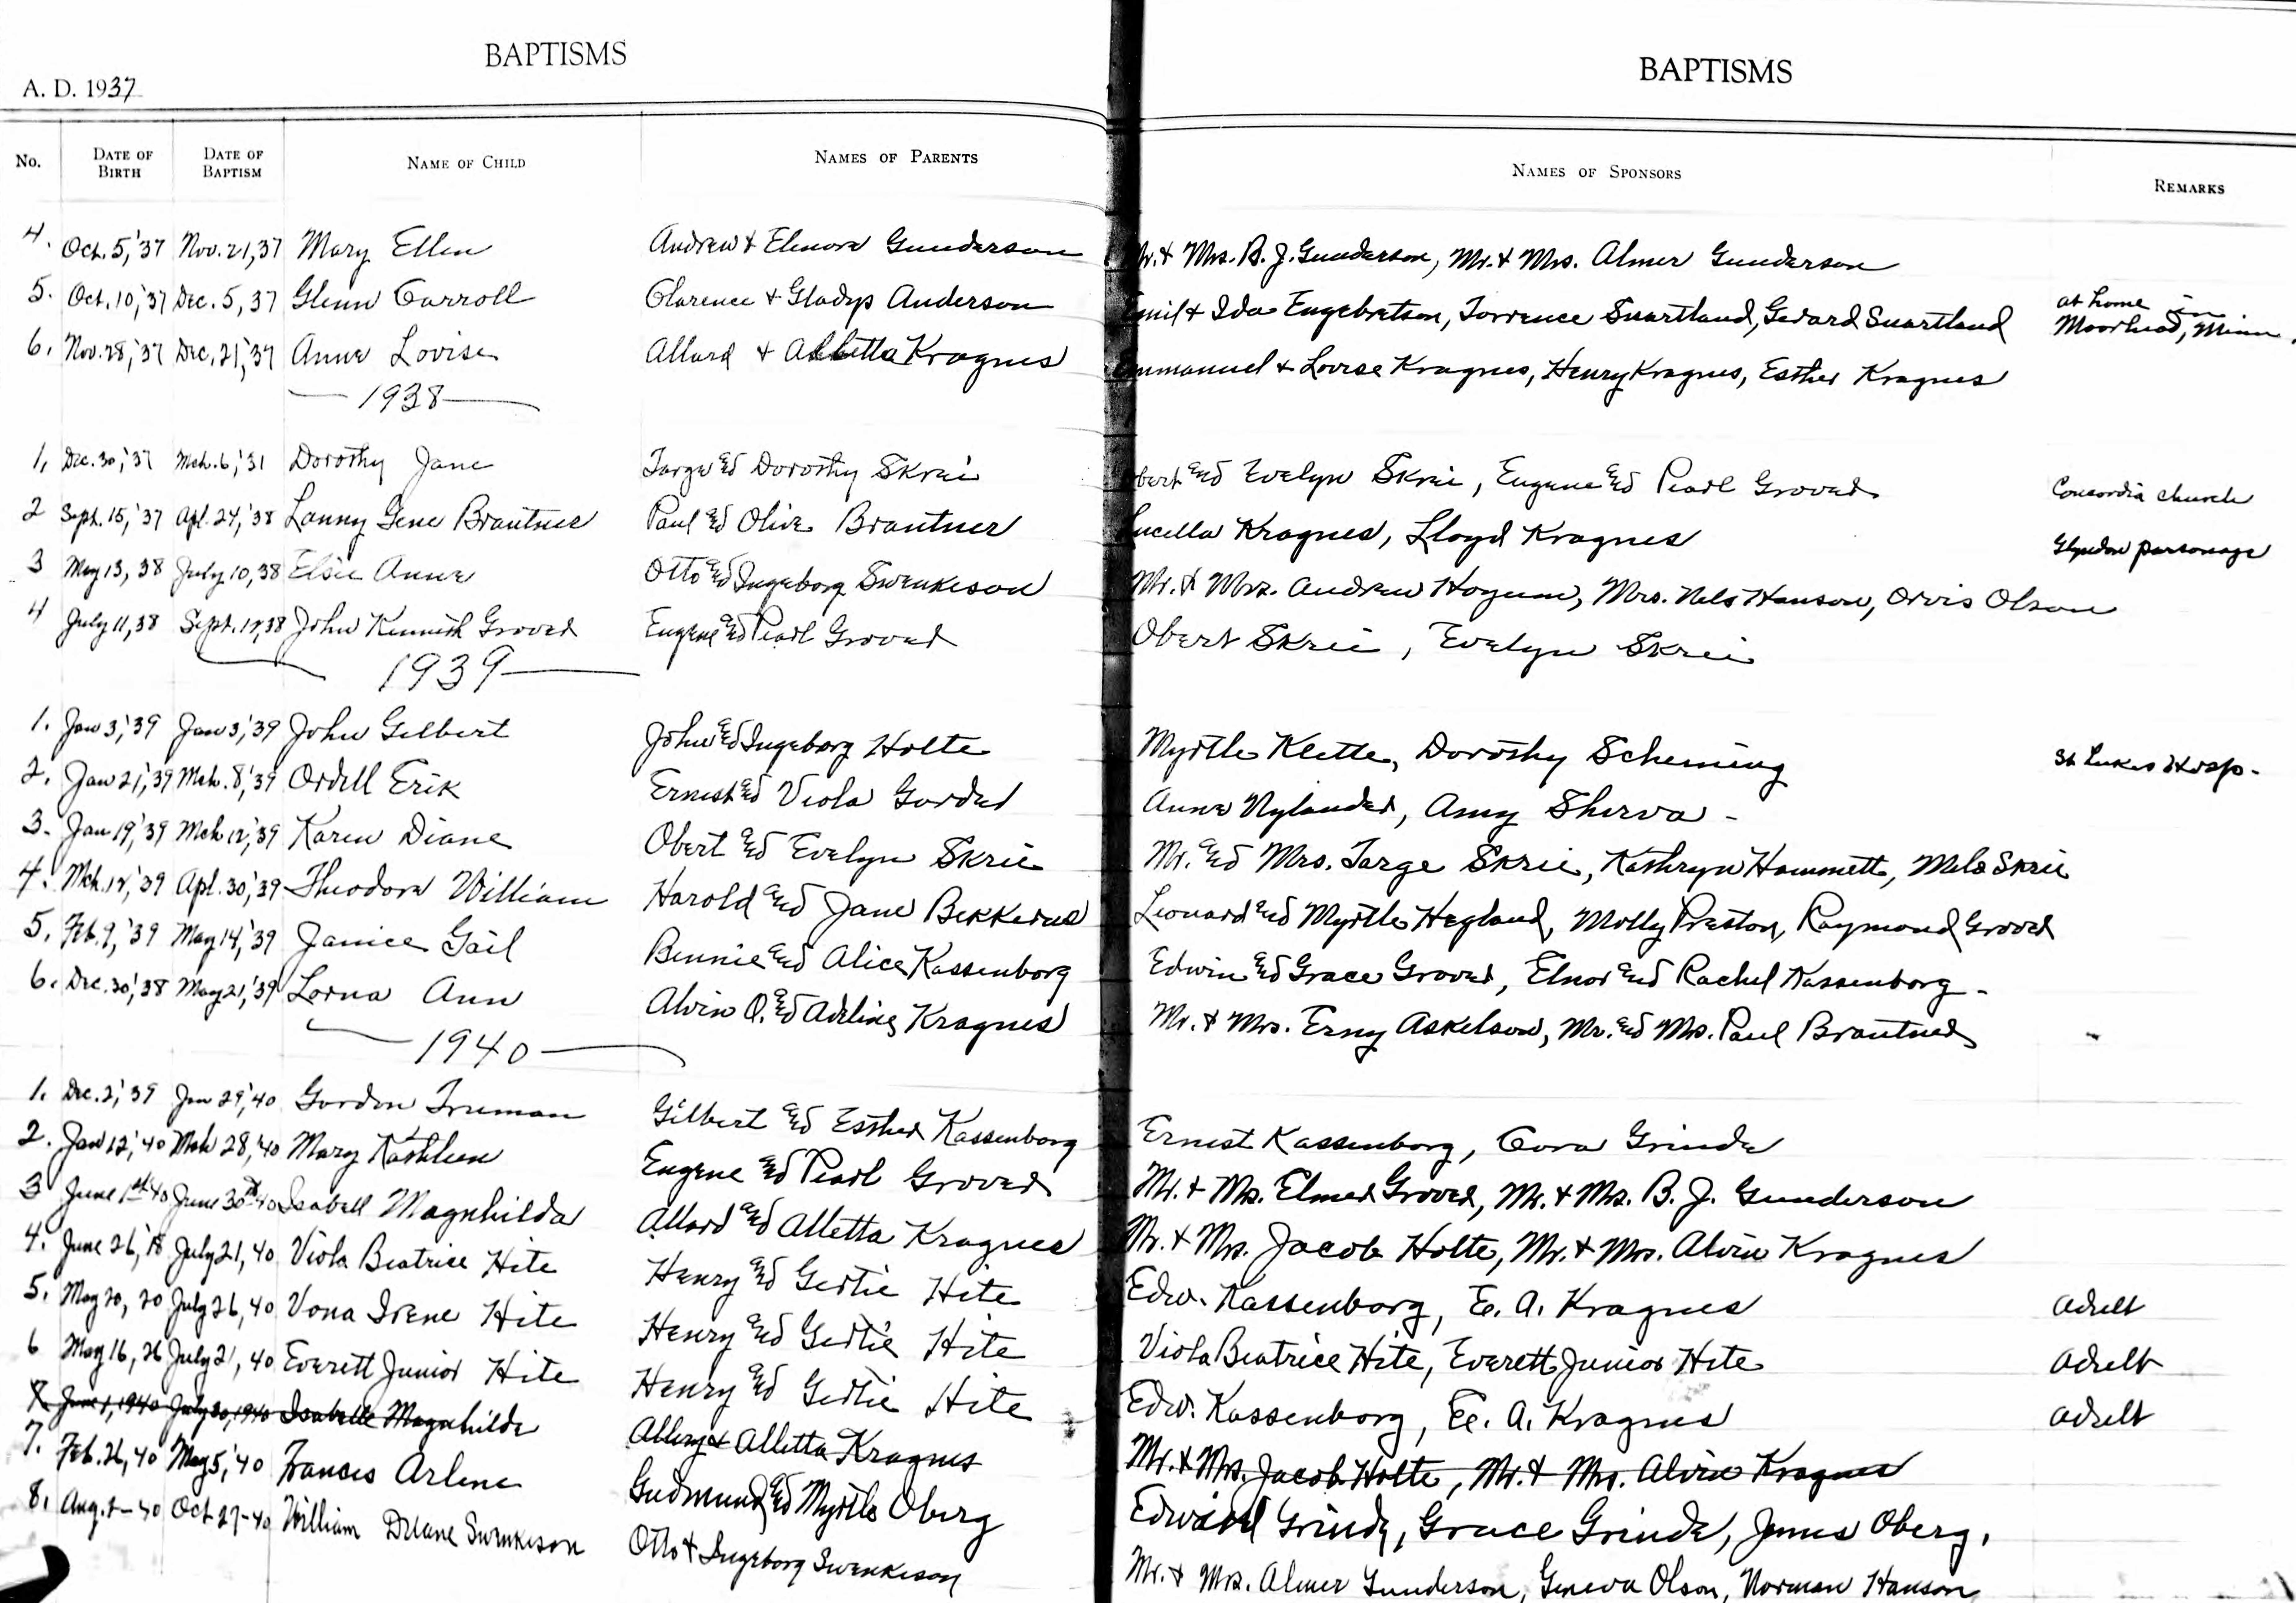 BAPTISMS
A. D. 1937
No. DATE OF BIRTH DATE OF BAPTISM NAME OF CHILD NAMES OF PARENTS
4. Oct. 5,'37 Nov. 21,37 Mary Ellen Andrew & Elenora Gunderson
5. Oct. 10,'37 Dec. 5, 37 Glenn Carroll Clarence & Gladys Anderson
6. Nov. 28,'37 Dec. 21,'37 Anne Lovise Allard & Alletta Kragnes
1938
1. Dec. 30,'37 Mch. 6,'31 Dorothy Jane Targe and Dorothy Skrei
2 Sept. 15,'37 Apl. 24,'38 Lanny Gene Brantner Paul and Olive Brantner
3 May 13, 38 July 10, 38 Elsie Anne Otto and Ingeborg Swenkeson
4 July 11, 38 Sept. 38 John Kenneth Grover Eugene and Pearl Grover
1939
1. Jan 3,'39 Jan 3,'39 John Gilbert John and Ingeborg Holte
2. Jan 21,'39 Mch. 8,'39 Ordell Erik Ernest and Viola Gorder
3. Jan 19,'39 Mch 12,'39 Karen Diane Obert and Evelyn Skrie
4. Mch. '39 Apl. 30,'39 Theodore William Harold and Jane Bekkerus
5. Feb. 9, '39 May 14,'39 Janice Gail Bennie and Alice Kassenborg
6. Dec. 30,'38 May 21,'39 Lorna Ann Alvin O. and Adeline Kragnes
1940
1. Dec. 2,'39 Jan 29,'40 Gordon Truman Gilbert and Esther Kassenborg
2. Jan 12,'40 Mch 28,'40 Mary Kathleen Eugene and Pearl Grover
3 June 1st 40 June 30th 40 Isabell Magnhilda Allard and Alletta Kragnes
4. June 26, 18 July 21, 40 Viola Beatrice Hite Henry and Gertie Hite
5. May 20, 20 July 26, 40 Vona Irene Hite Henry and Gertie Hite
6 May 16, 26 July 21, 40 Everett Junior Hite Henry and Gertie Hite
June 1, 1940 July 30, 1940 Isabelle Magnhilda & Alletta Kragnes
7. Feb. 26, 40 May 5,'40 Frances Arlene Gudmund and Myrtle Oberg
8. Aug. 40 Oct 27-40 William Duane Swenkeson Otto & Ingeborg Swenkeson
BAPTISMS
NAMES OF SPONSORS REMARKS
Mr. & Mrs. B. J. Gunderson, Mr. & Mrs. Almer Gunderson
Emil & Ida Engebretson, Torrence Swartland, Gerard Swartland at home in Moorhead, Minn.
Emmanuel & Lovise Kragnes, Henry Kragnes, Esther Kragnes
Obert and Evelyn Skrei, Eugene and Pearl Grover Concordia church
Lucella Kragnes, Lloyd Kragnes Glyndon parsonage
Mr. & Mrs. Andrew Hogum, Mrs. Nels Hanson, Orvis Olson
Obert Skrei, Evelyn Skrei
Myrtle Klette, Dorothy Scheming St Lukes Hosp.
Anne Nylander, Amy Sherva
Mr. and Mrs. Targe Skrie, Kathryn Hammett, Mela Skrie
Leonard and Myrtle Hegland, Molly Preston, Raymond Grover
Edwin and Grace Grover, Elnor and Rachel Kassenborg
Mr. & Mrs. Erny Askelson, Mr. and Mrs. Paul Brantner
Ernest Kassenborg, Cora Grinde
Mr. & Mrs. Elmer Grover, Mr. & Mrs. B. J. Gunderson
Mr. & Mrs. Jacob Holte, Mr. & Mrs. Alvin Kragnes
Edw. Kassenborg, E. A. Kragnes adult
Viola Beatrice Hite, Everett Junior Hite adult
Edw. Kassenborg, E. A. Kragnes adult
Mr. & Mrs. Jacob Holte, Mr. & Mrs. Alvin Kragnes
Edward Grinde, Grace Grinde, James Oberg,
Mr. & Mrs. Almer Gunderson, Geneva Olson, Norman Hanson